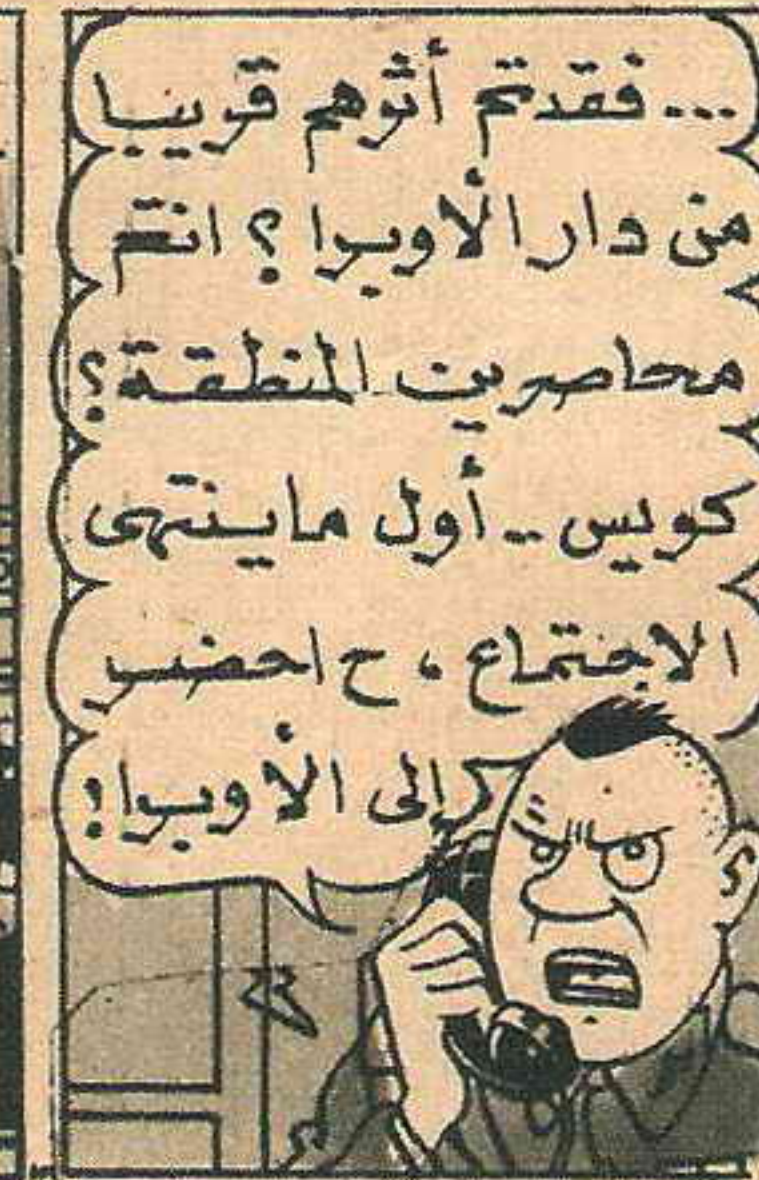 ... فقدتم أثرهم قريبا
من دار الأوبرا ؟ انتم
محاصرين المنطقة ؟
كويس .. أول ماينتهى
الاجتماع ، ح احضر
إلى الأوبرا !